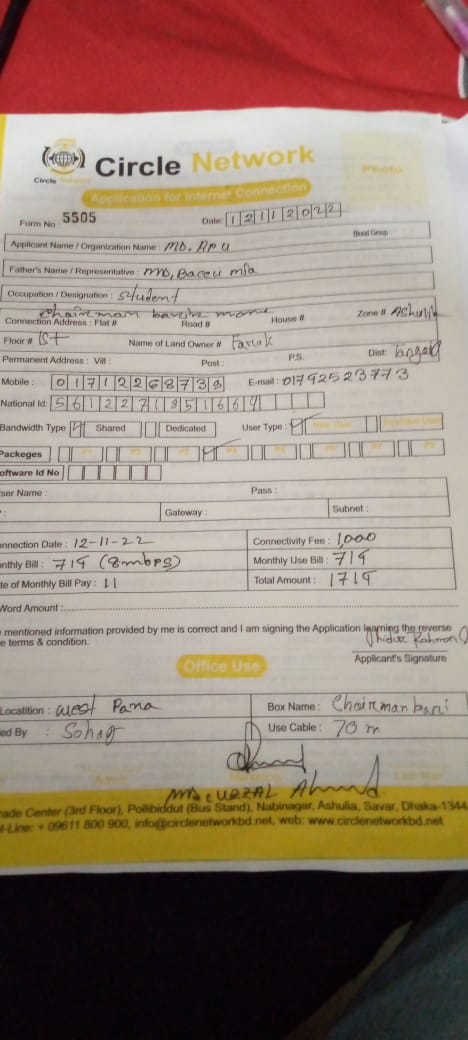 Circle Network
Circle Network
Photo
Application for Internet Connection
Form No 5505 Date: 12112022
Blood Group
Applicant Name / Organization Name : MD. APU
Father's Name / Representative : MD, Baccu mia
Occupation / Designation : Student
Chairman
Connection Address : Flat # Road # House # Zone # Ashulia
Floor # 1st Name of Land Owner # Faruk
Permanent Address : Vill : Post : P.S. Dist:
Mobile : E-mail : 01792523773
National Id:
Bandwidth Type Shared Dedicated User Type : New User
Packeges P1 P2 P3 P4 P5 P6 P7 P8
oftware Id No
ser Name : Pass :
: Gateway : Subnet :
nnection Date : 12-11-22 Connectivity Fee : 1,000
nthly Bill : 715 (8mbps) Monthly Use Bill : 715
te of Monthly Bill Pay : 11 Total Amount : 1715
Word Amount :
mentioned information provided by me is correct and I am signing the Application learning the reverse
e terms & condition.
Rahman
Applicant's Signature
Office Use
Locatition : West Para Box Name : Chairman bari
ed By : Sohag Use Cable : 70 m
MD: UZZAL Ahmed.
rade Center (3rd Floor), Pollibiddut (Bus Stand), Nabinagar, Ashulia, Savar, Dhaka-1344
t-Line: + 09611 800 900, info@circlenetworkbd.net, web: www.circlenetworkbd.net